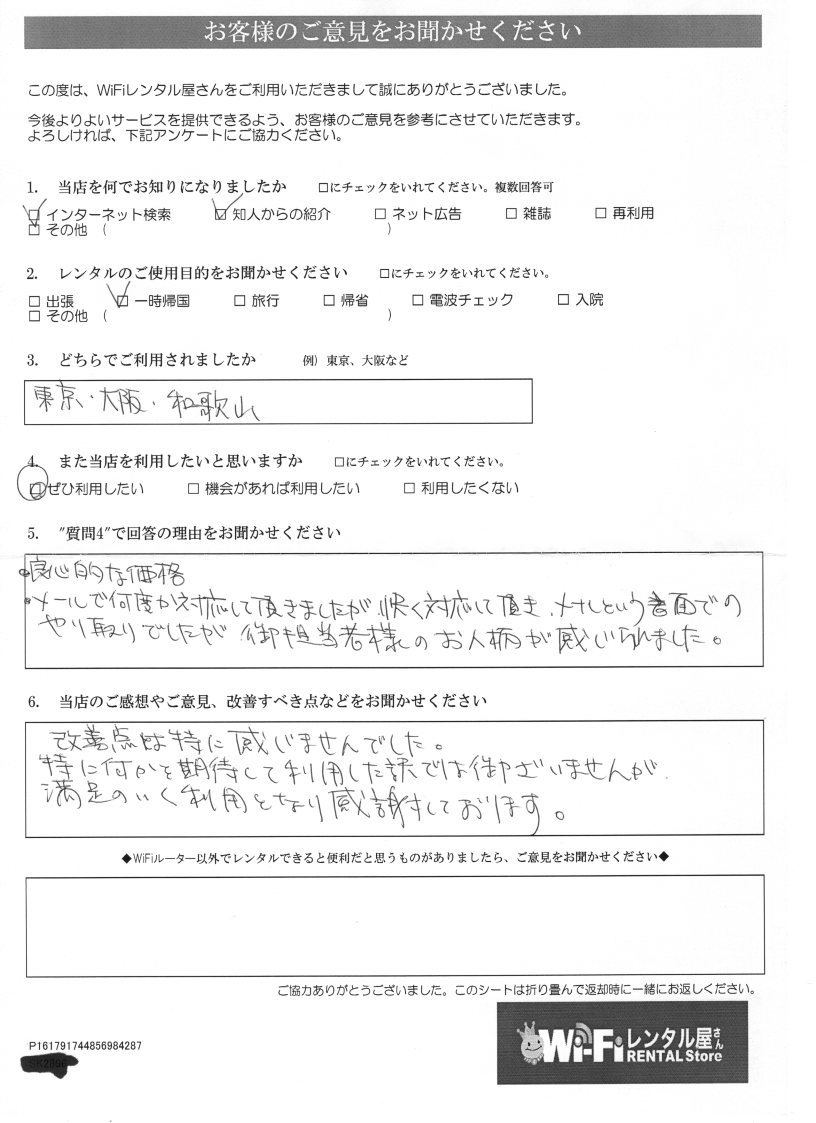 お客様のご意見をお聞かせください
この度は、WiFiレンタル屋さんをご利用いただきまして誠にありがとうございました。
今後よりよいサービスを提供できるよう、お客様のご意見を参考にさせていただきます。
よろしければ、下記アンケートにご協力ください。
1. 当店を何でお知りになりましたか □にチェックをいれてください。複数回答可
☑ インターネット検索 ☑ 知人からの紹介 □ ネット広告 □ 雑誌 □ 再利用
□ その他 ( )
2. レンタルのご使用目的をお聞かせください □にチェックをいれてください。
□ 出張 ☑ 一時帰国 □ 旅行 □ 帰省 □ 電波チェック □ 入院
□ その他 ( )
3. どちらでご利用されましたか 例) 東京、大阪など
東京・大阪・和歌山
4. また当店を利用したいと思いますか □にチェックをいれてください。
□ぜひ利用したい □ 機会があれば利用したい □ 利用したくない
5. "質問4"で回答の理由をお聞かせください
・良心的な価格
・メールで何度か対応して頂きましたが、快く対応して頂き、メールという書面での
やり取りでしたが 御担当者様のお人柄が感じられました。
6. 当店のご感想やご意見、改善すべき点などをお聞かせください
改善点は特に感じませんでした。
特に何かを期待して利用した訳では御ざいませんが、
満足のいく利用となり感謝しております。
◆WiFiルーター以外でレンタルできると便利だと思うものがありましたら、ご意見をお聞かせください◆
ご協力ありがとうございました。このシートは折り畳んで返却時に一緒にお返しください。
P161791744856984287
Wi-Fiレンタル屋さん
RENTAL Store